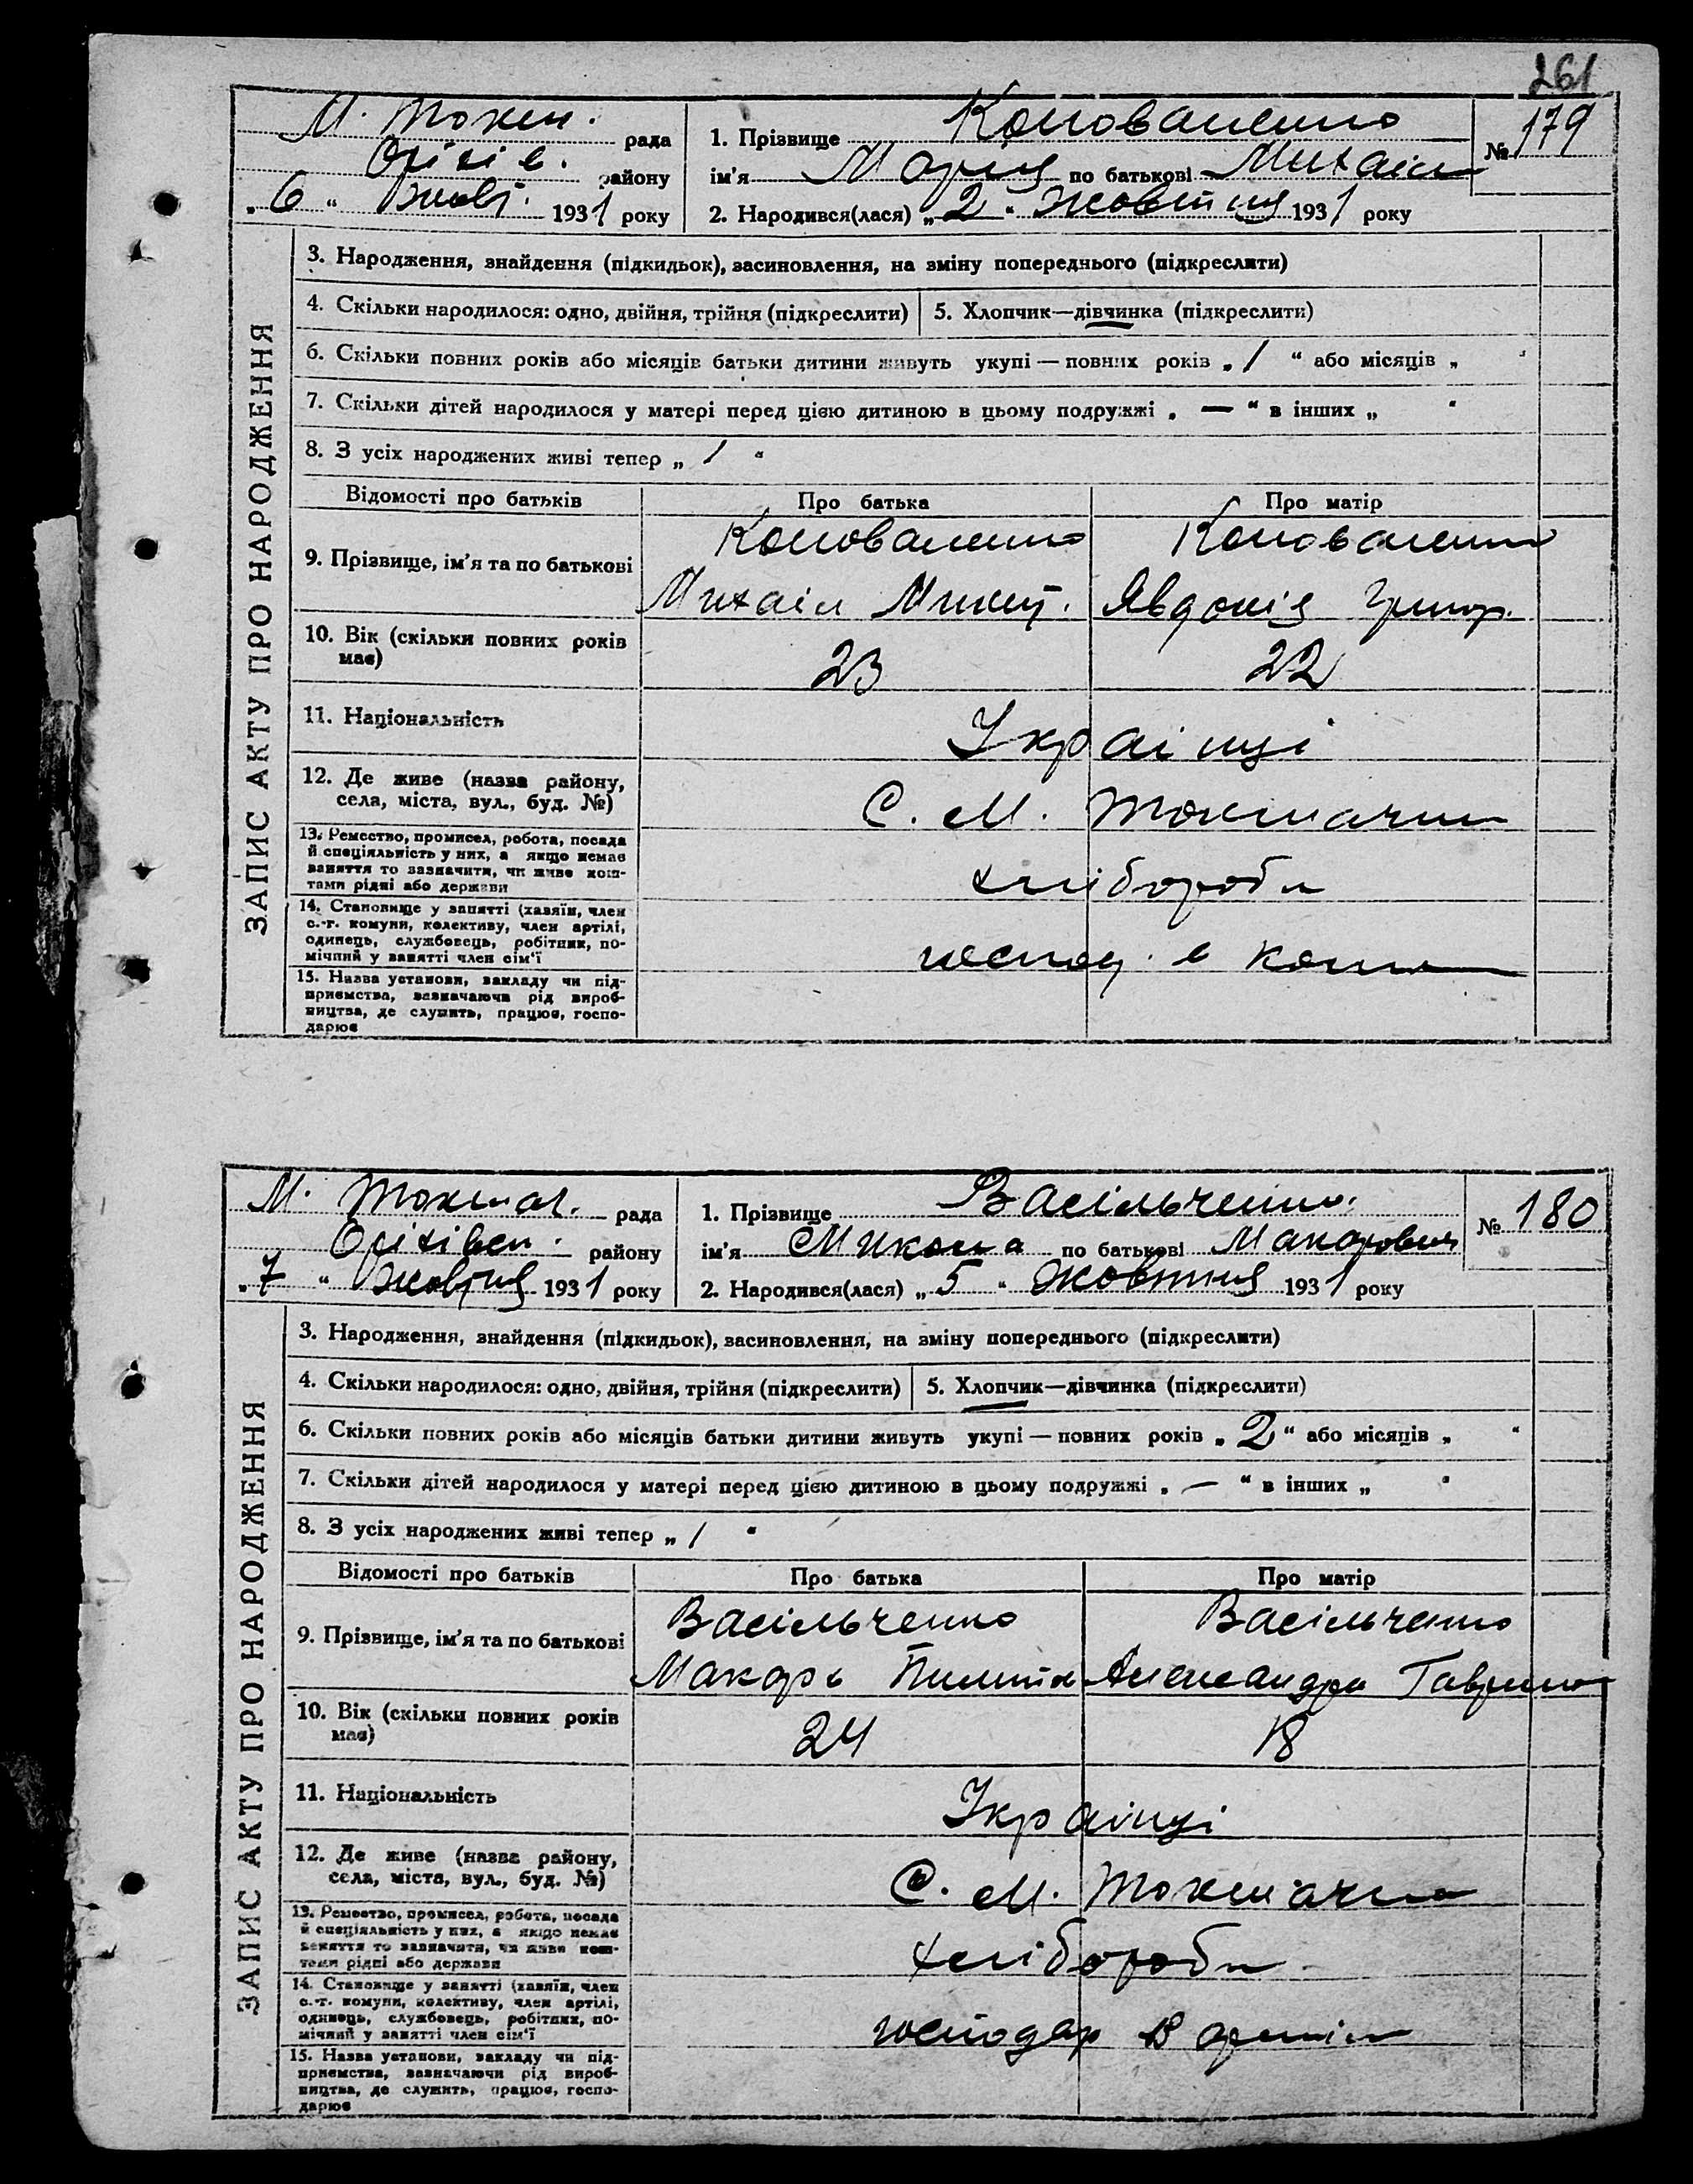 261
М. Токм. рада
Оріхів. району
„6“ Жовт. 1931 року
1. Прізвище Коноваленко
ім'я Марія по батькові Михаил
2. Народився(лася) „2“ Жовтня 1931 року
№ 179
ЗАПИС АКТУ ПРО НАРОДЖЕННЯ
3. Народження, знайдення (підкидьок), засиновлення, на зміну попереднього (підкреслити)
4. Скільки народилося: одно, двійня, трійня (підкреслити) 5. Хлопчик—дівчинка (підкреслити)
6. Скільки повних років або місяців батьки дитини живуть укупі — повних років „ 1 “ або місяців „ “
7. Скільки дітей народилося у матері перед цією дитиною в цьому подружжі „ — “ в інших „ “
8. З усіх народжених живі тепер „ 1 “
Відомості про батьків Про батька Про матір
9. Прізвище, ім'я та по батькові
Коноваленко Коноваленко
Михаіл Микит. Явдокія Григор.
10. Вік (скільки повних років
має)
23 22
11. Національність
Українці
12. Де живе (назва району,
села, міста, вул., буд. №)
С. М. Токмачка
13. Ремество, промисел, робота, посада
й спеціяльність у них, а якщо немає
заняття то зазначити, чи живе кош-
тами рідні або держави
хлібороби
14. Становище у занятті (хазяїн, член
с.-г. комуни, колективу, член артілі,
одинець, службовець, робітник, по-
мічний у занятті член сім'ї
господ. в
15. Назва установи, закладу чи під-
приємства, зазначаючи рід вироб-
ництва, де служить, працює, госпо-
дарює
М. Токмач. рада
Оріхівск. району
„7“ Жовтня 1931 року
1. Прізвище Васільченко
ім'я Микола по батькові Макарович
2. Народився(лася) „5“ Жовтня 1931 року
№ 180
ЗАПИС АКТУ ПРО НАРОДЖЕННЯ
3. Народження, знайдення (підкидьок), засиновлення, на зміну попереднього (підкреслити)
4. Скільки народилося: одно, двійня, трійня (підкреслити) 5. Хлопчик—дівчинка (підкреслити)
6. Скільки повних років або місяців батьки дитини живуть укупі — повних років „ 2 “ або місяців „ “
7. Скільки дітей народилося у матері перед цією дитиною в цьому подружжі „ — “ в інших „ “
8. З усіх народжених живі тепер „ 1 “
Відомості про батьків Про батька Про матір
9. Прізвище, ім'я та по батькові
Васільченко Васільченко
Макарь Пилип Александра Гаврило
10. Вік (скільки повних років
має)
24 18
11. Національність
Українці
12. Де живе (назва району,
села, міста, вул., буд. №)
С. М. Токмачка
13. Ремество, промисел, робота, посада
й спеціяльність у них, а якщо немає
заняття то зазначити, чи живе кош-
тами рідні або держави
хлібороби
14. Становище у занятті (хазяїн, член
с.-г. комуни, колективу, член артілі,
одинець, службовець, робітник, по-
мічний у занятті член сім'ї
господар в артілі
15. Назва установи, закладу чи під-
приємства, зазначаючи рід вироб-
ництва, де служить, працює, госпо-
дарює